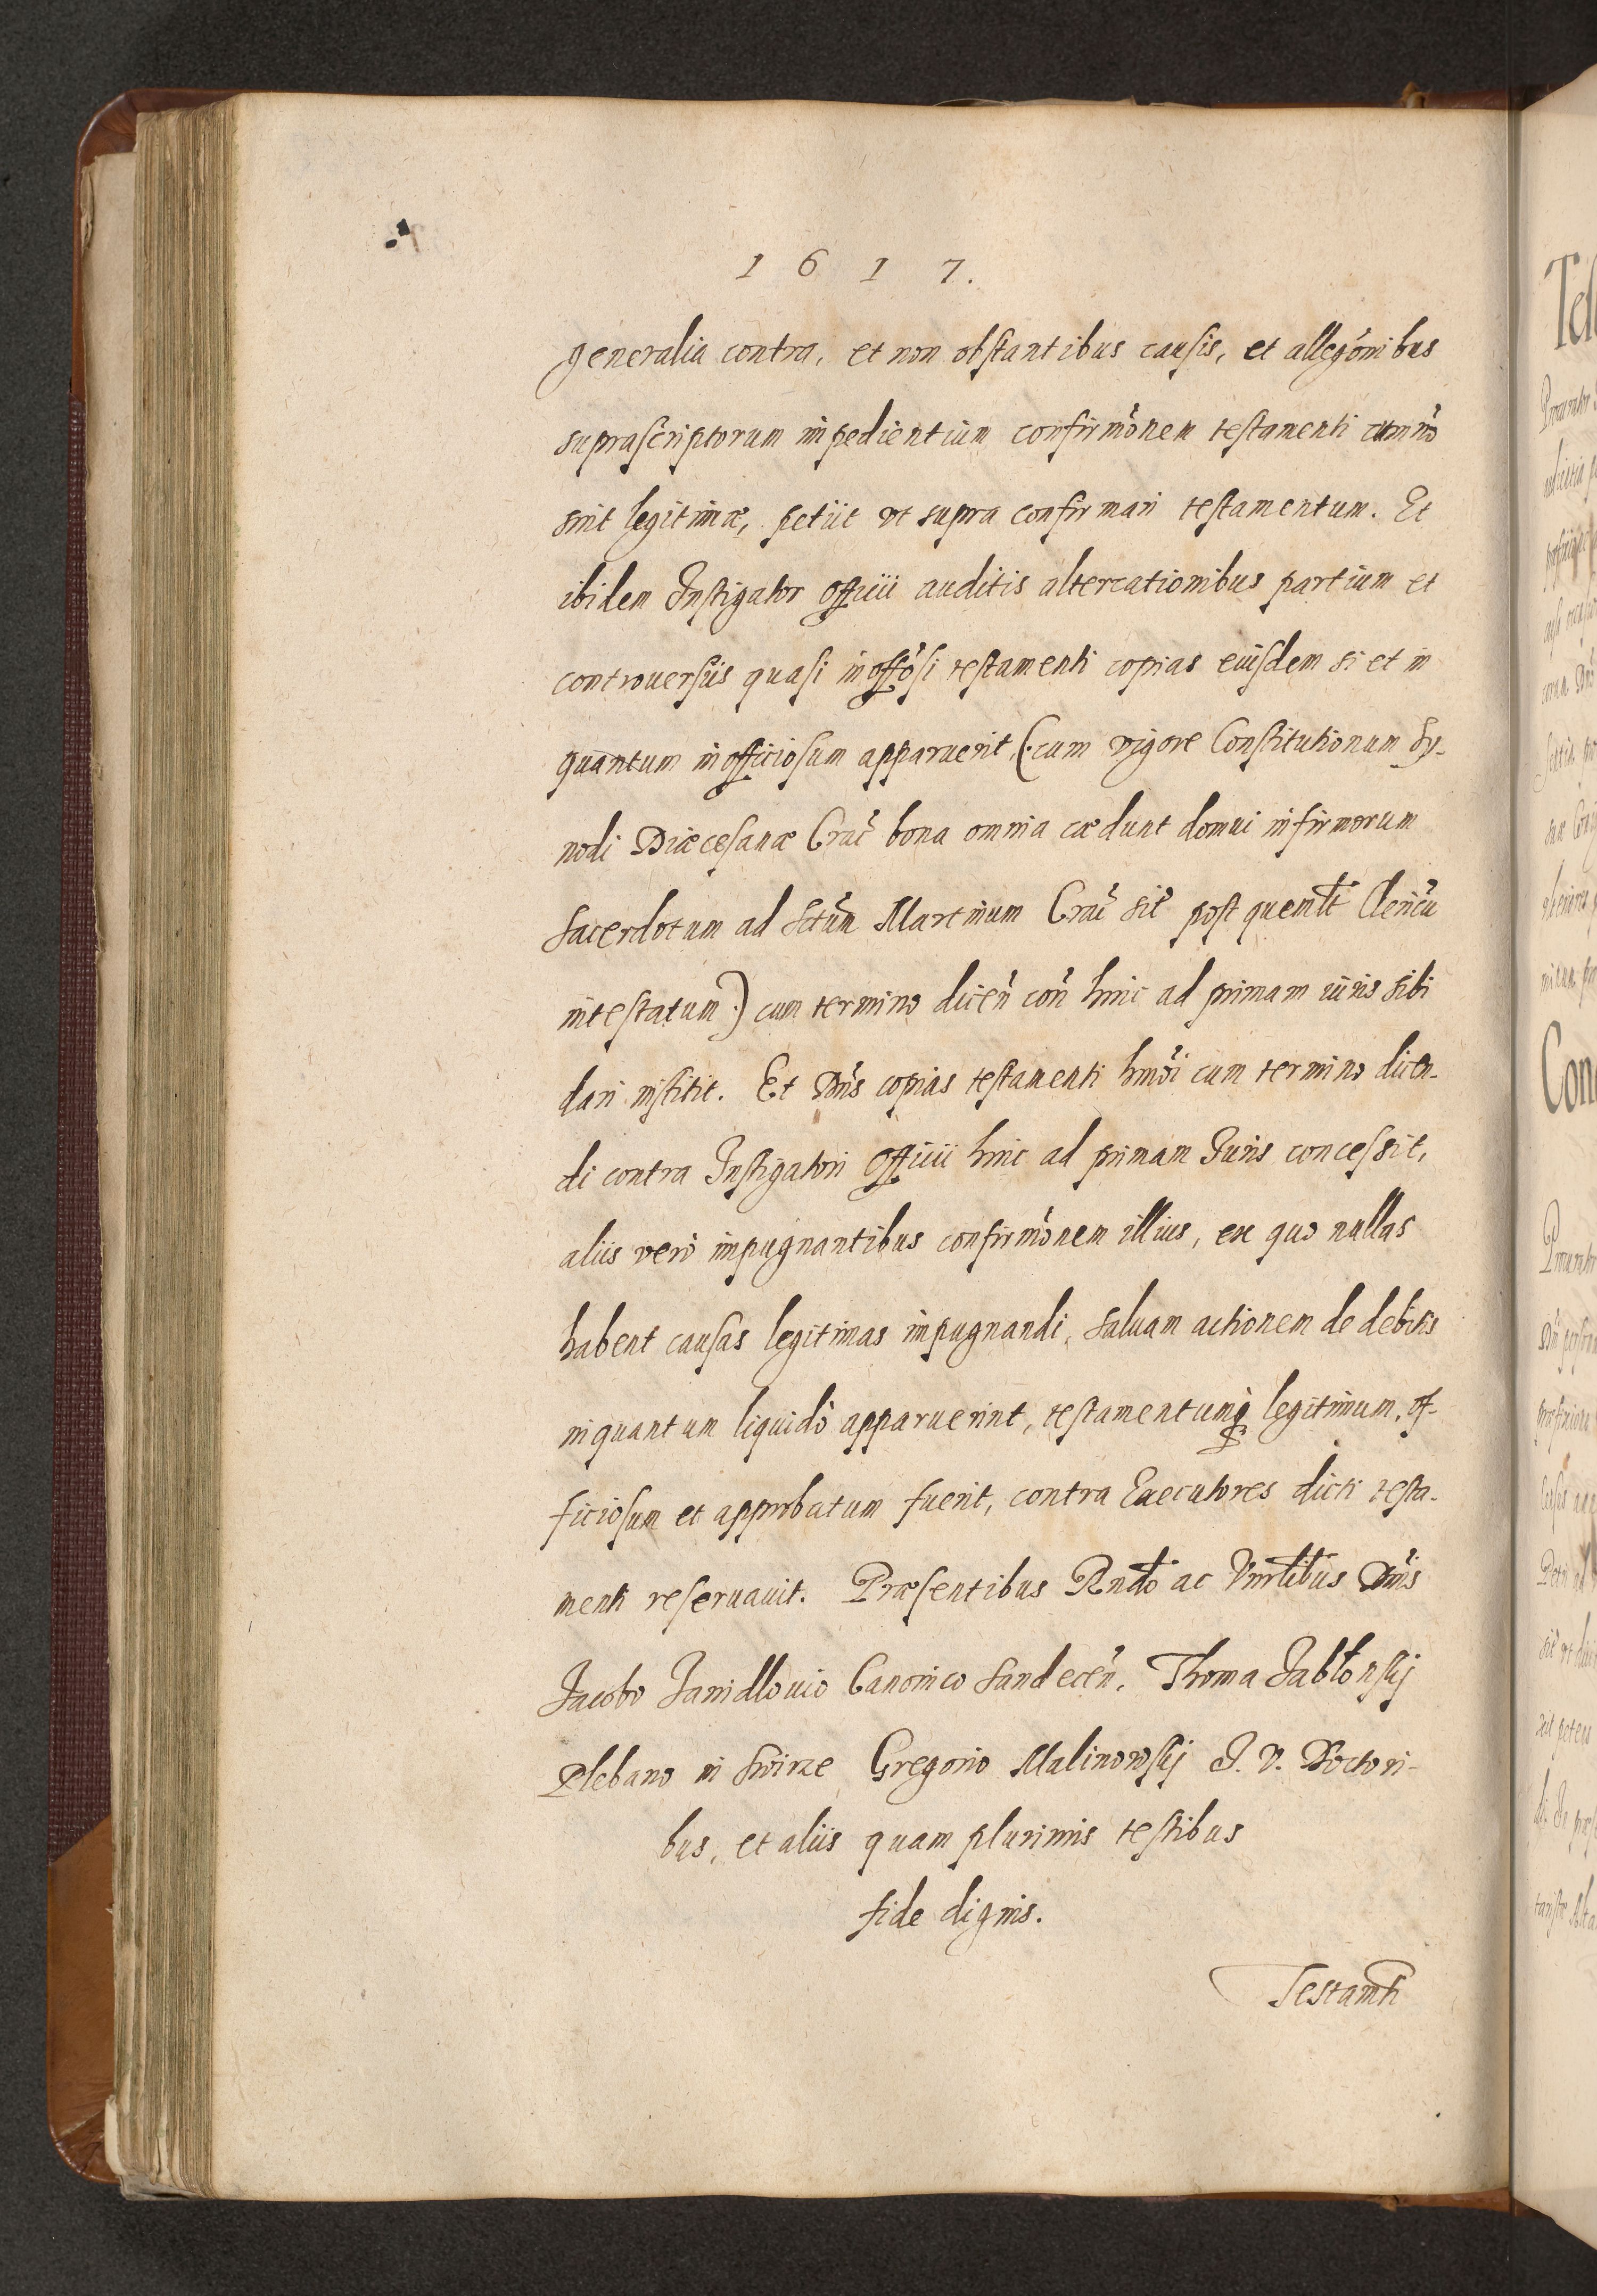 1 6 1 7.
generalia contra, et non obstantibus causis, et allegõnibus
suprascriptorum impedientium confirmõnem testamenti cum nõ
sint legitimæ, petiit vt supra confirmari testamentum. Et
ibidem Instigator Officii auditis altercationibus partium et
controuersiis quasi inoffõsi testamenti copias eiusdem si et in
quantum inofficiosum apparuerit, (cum vigore Constitutionum Sy-
nodi Diæcesanæ Crac̃ bona omnia cædunt domui infirmorum
Sacerdotum ad Sctũm Martinum Crac̃ sit̃ post quemlt Clericũ
intestatum) cum termino dicen̄ con̄ hinc ad primam iuris sibi
dari institit. Et Dñs copias testamenti hmõi cum termino dicen-
di contra Instigatori Officii hinc ad primam Iuris concessit,
aliis verò impugnantibus confirmõnem illius, ex quo nullas
habent causas legitimas impugnandi, saluam actionem de debitis
inquantum liquidò apparuerint, testamentumq́ legitimum, of-
ficiosum et approbatum fuerit, contra Executores dicti testa-
menti reseruauit. Præsentibus Rndo ac Vnrlibus Dñis
Jacobo Janidlouio Canonico Sandecen̄, Thoma Jabłonskj
Plebano in Swirze Gregorio Malinowskj I. V. Doctori-
bus, et aliis quam plurimis testibus
fide dignis.
Testamti